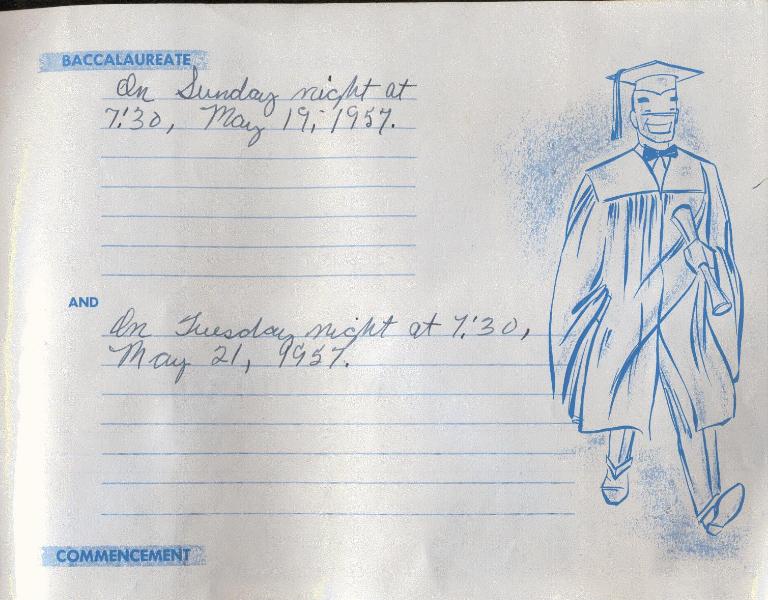 BACCALAUREATE
On Sunday night at
7:30, May 19, 1957.
AND
On Tuesday night at 7:30,
May 21, 9957.
COMMENCEMENT